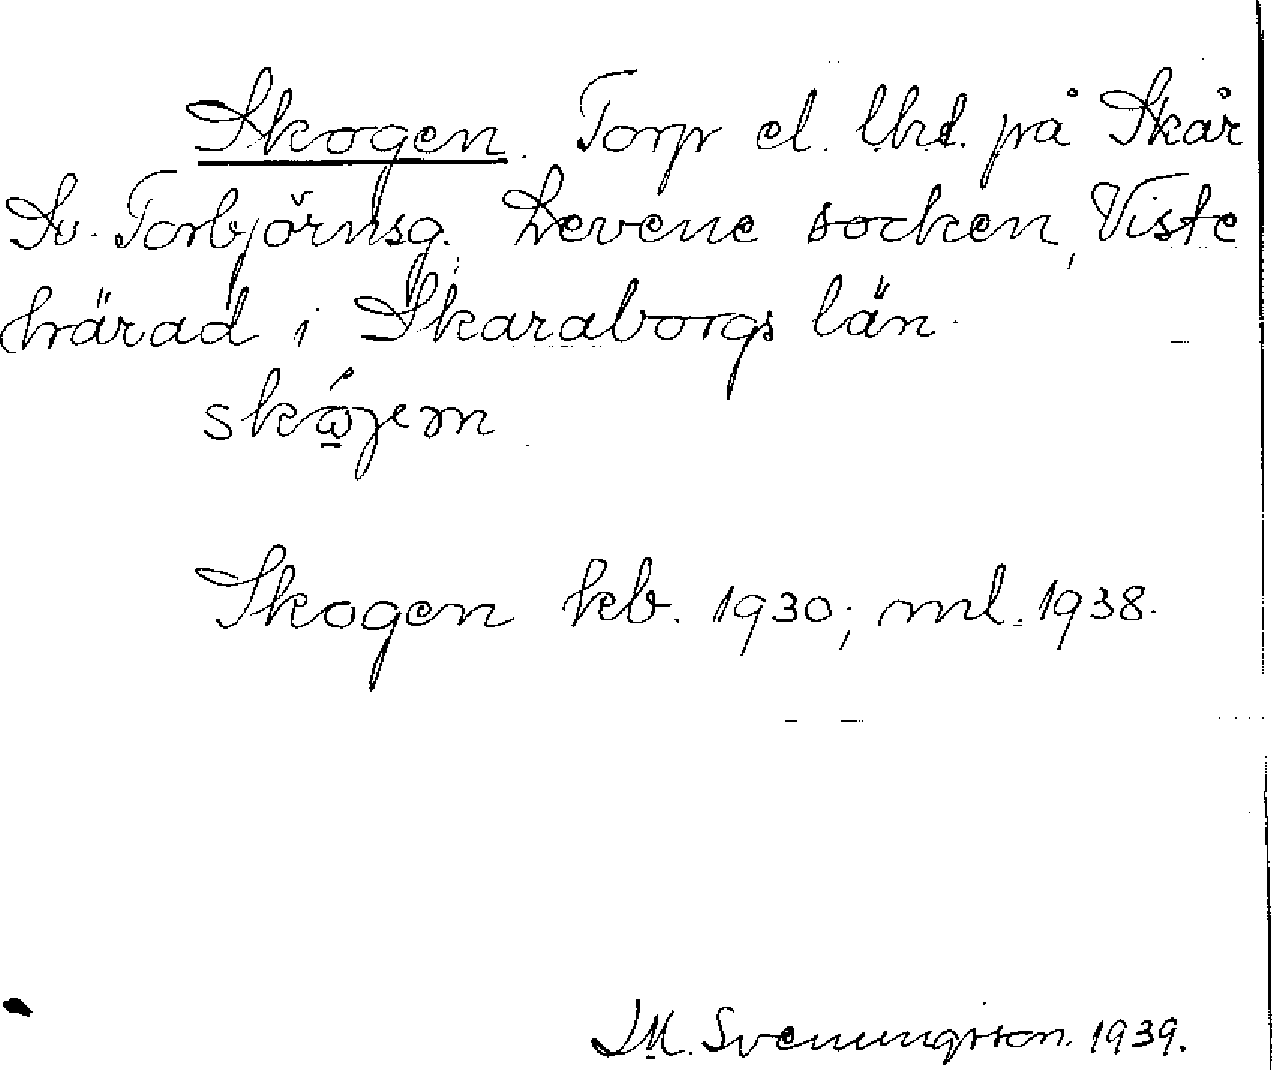 Skogen. Torp el. lhd. på Skår
Sv. Torbjörnsg. Levene socken, Viste
härad i Skaraborgs län.
Skogen kb. 1930; ml. 1938.
J.M. Svenungsson. 1939.